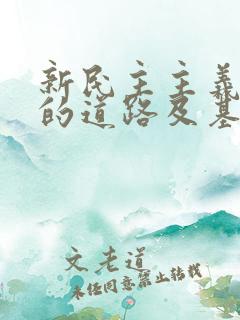 新民主主义
的道路及基
文老道
未经同意禁止转载